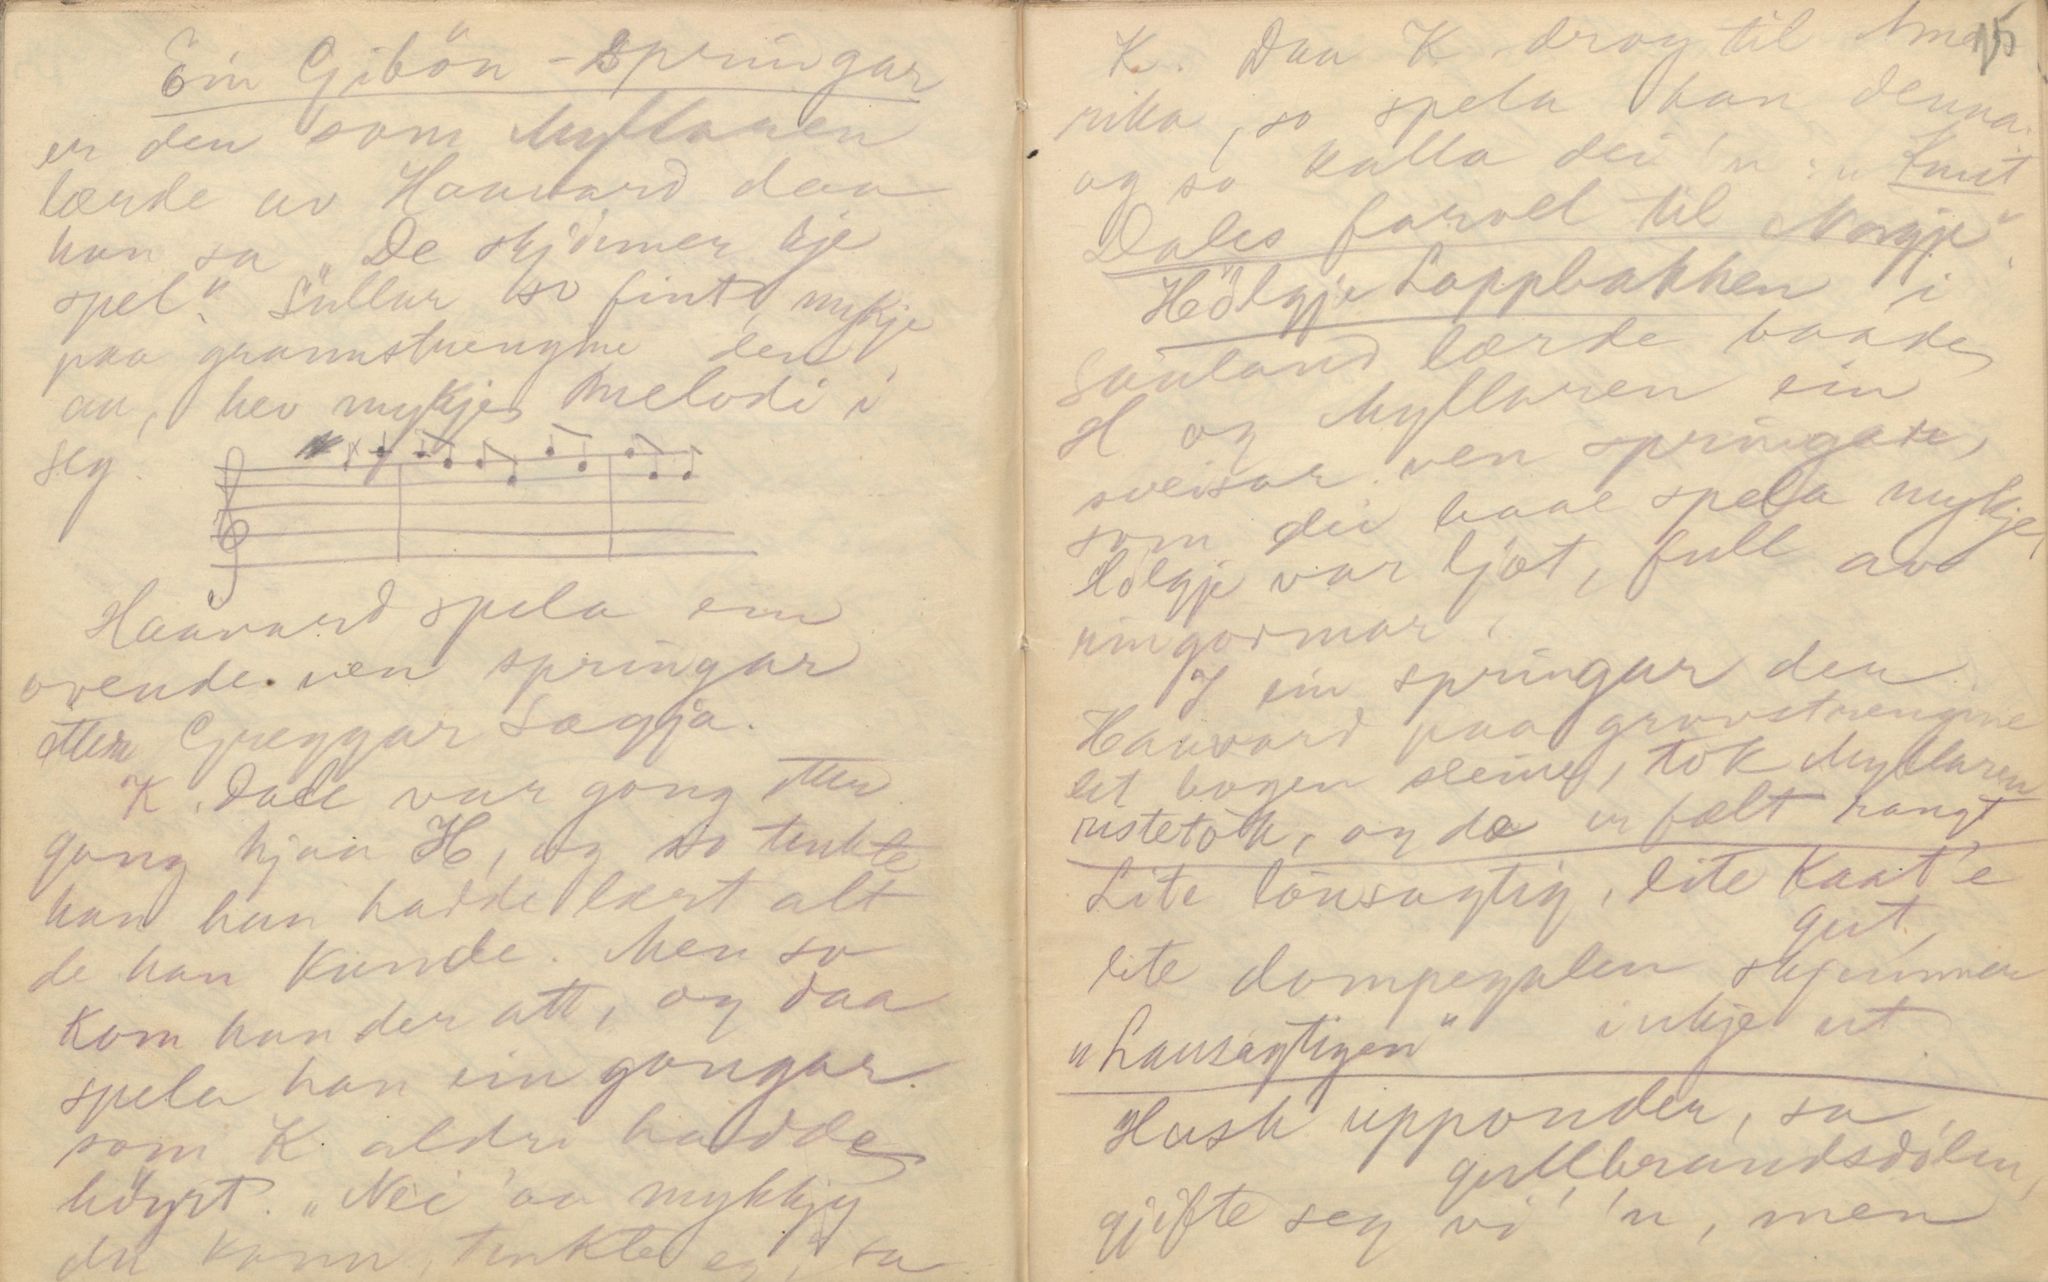 Ein Gibön-Springar
er den som Myllaren
lærde av Haavard daa
han sa „De skjömer kje
spel." Sullar so fint, mykje
paa grannstrengjine den
au, hev mykje melodi i
seg.
Haavard spela ein
ovende ven springar
etter Greggar Sægja.
K. Dale var gong etter
gong hjaa H, og so tenkte
han han hadde lært alt
de han kunde. Men so
kom han der att, og daa
spela han ein gongar
som K aldri hadde
höyrt. „Nei 'aa mykkjy
du kann, tenkte eg," sa
15
K. Daa K. drog til Ame
rika, so spela han denna
og so kalla dei 'n: „Knut
Dales farvel til Norgje".
Hölgje Loppbakken i
Sauland lærde baade
H og Myllaren ein
sveisar ven springar,
som dei baae spela mykje,
Hölgje var ljot, full av
ringormar.
I ein springar der
Haavard paa grovstrengine
let bogen sleine, tok Myllaren
ristetok, og dæ er fælt rangt
Lite lausagtig, lite kaat'e
gut,
lite dompegalen skjemmer
„Lausagtigen" inkje ut.
Hush upponder, sa
gullbrandsdölen,
gjifte seg vi' 'n, men